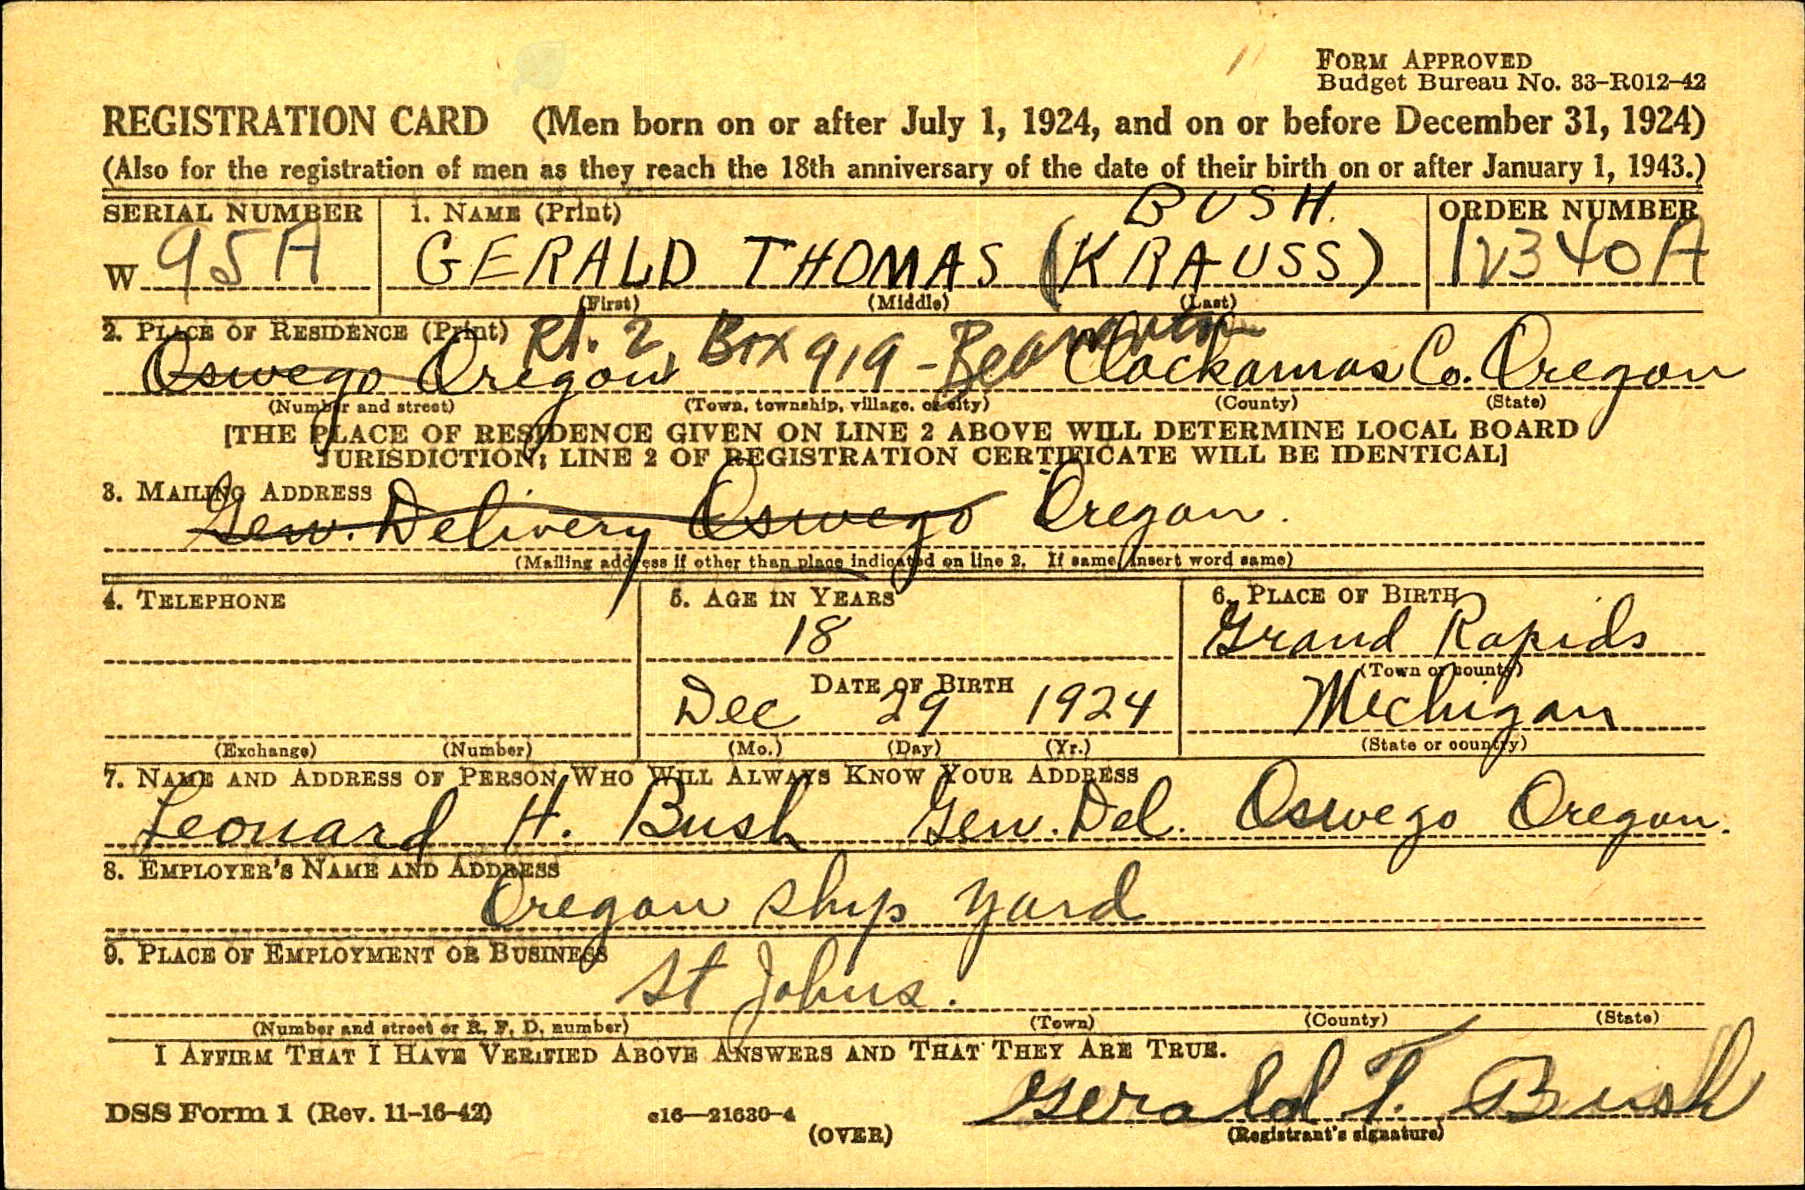 FORM APPROVED
Budget Bureau No. 33-R012-42
REGISTRATION CARD (Men born on or after July 1, 1924, and on or before December 31, 1924)
(Also for the registration of men as they reach the 18th anniversary of the date of their birth on or after January 1, 1943.)
SERIAL NUMBER 1. NAME (Print) BUSH. ORDER NUMBER
W 95A GERALD THOMAS (KRAUSS) 12340A
(First) (Middle) (Last)
2. PLACE OF RESIDENCE (Print) Rt. 2, Box 919 - Beaverton
Oswego Oregon Clackamas Co. Oregon
(Number and street) (Town, township, village, or city) (County) (State)
[THE PLACE OF RESIDENCE GIVEN ON LINE 2 ABOVE WILL DETERMINE LOCAL BOARD
JURISDICTION; LINE 2 OF REGISTRATION CERTIFICATE WILL BE IDENTICAL]
3. MAILING ADDRESS
Gen. Delivery Oswego Oregon.
(Mailing address if other than place indicated on line 2. If same, insert word same)
4. TELEPHONE 5. AGE IN YEARS 6. PLACE OF BIRTH
18 Grand Rapids
(Town or county)
DATE OF BIRTH
Dec 29 1924 Michigan
(Exchange) (Number) (Mo.) (Day) (Yr.) (State or country)
7. NAME AND ADDRESS OF PERSON WHO WILL ALWAYS KNOW YOUR ADDRESS
Leonard H. Bush Gen. Del. Oswego Oregon.
8. EMPLOYER'S NAME AND ADDRESS
Oregon Ship Yard
9. PLACE OF EMPLOYMENT OR BUSINESS
St Johns.
(Number and street or R. F. D. number) (Town) (County) (State)
I AFFIRM THAT I HAVE VERIFIED ABOVE ANSWERS AND THAT THEY ARE TRUE.
Gerald T. Bush
DSS Form 1 (Rev. 11-16-42) c16—21630-4
(OVER) (Registrant's signature)